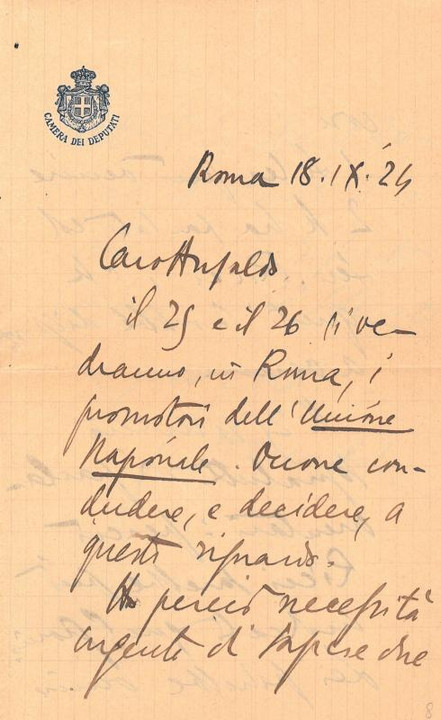 CAMERA DEI DEPUTATI
Roma 18.IX.24
Caro Ansaldo,
il 25 e il 26 si ve-
dranno, in Roma, i
promotori dell'Unione
Nazionale. Occorre con-
cludere, e decidere, a
questo riguardo.
Ho perciò necessità
urgente di sapere che
8